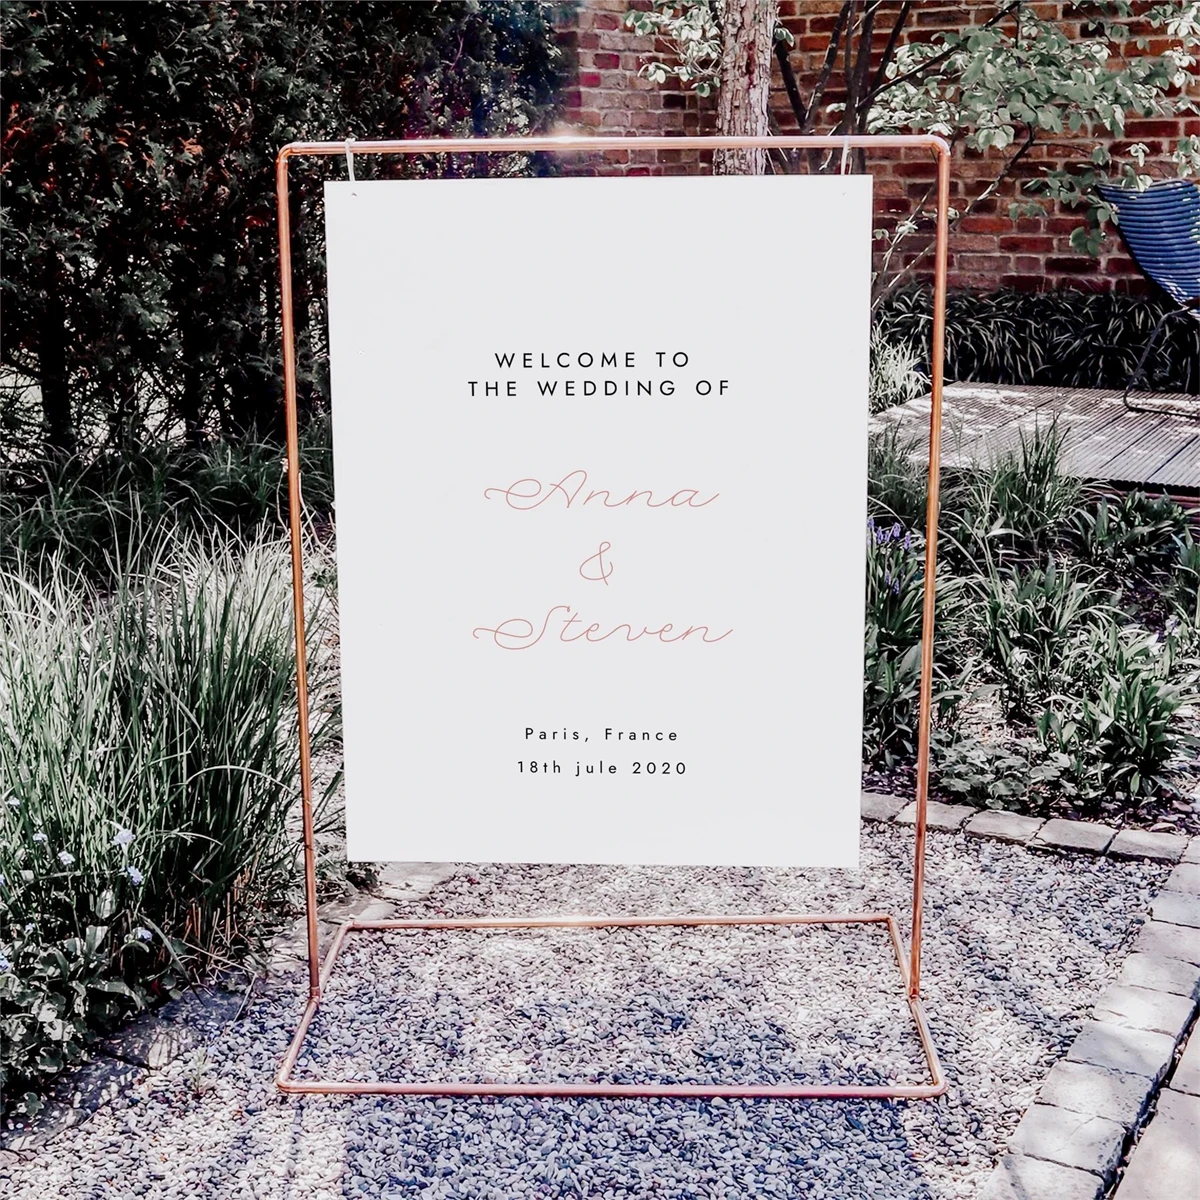 WELCOME TO
THE WEDDING OF
Anna
&
Steven
Paris, France
18th jule 2020